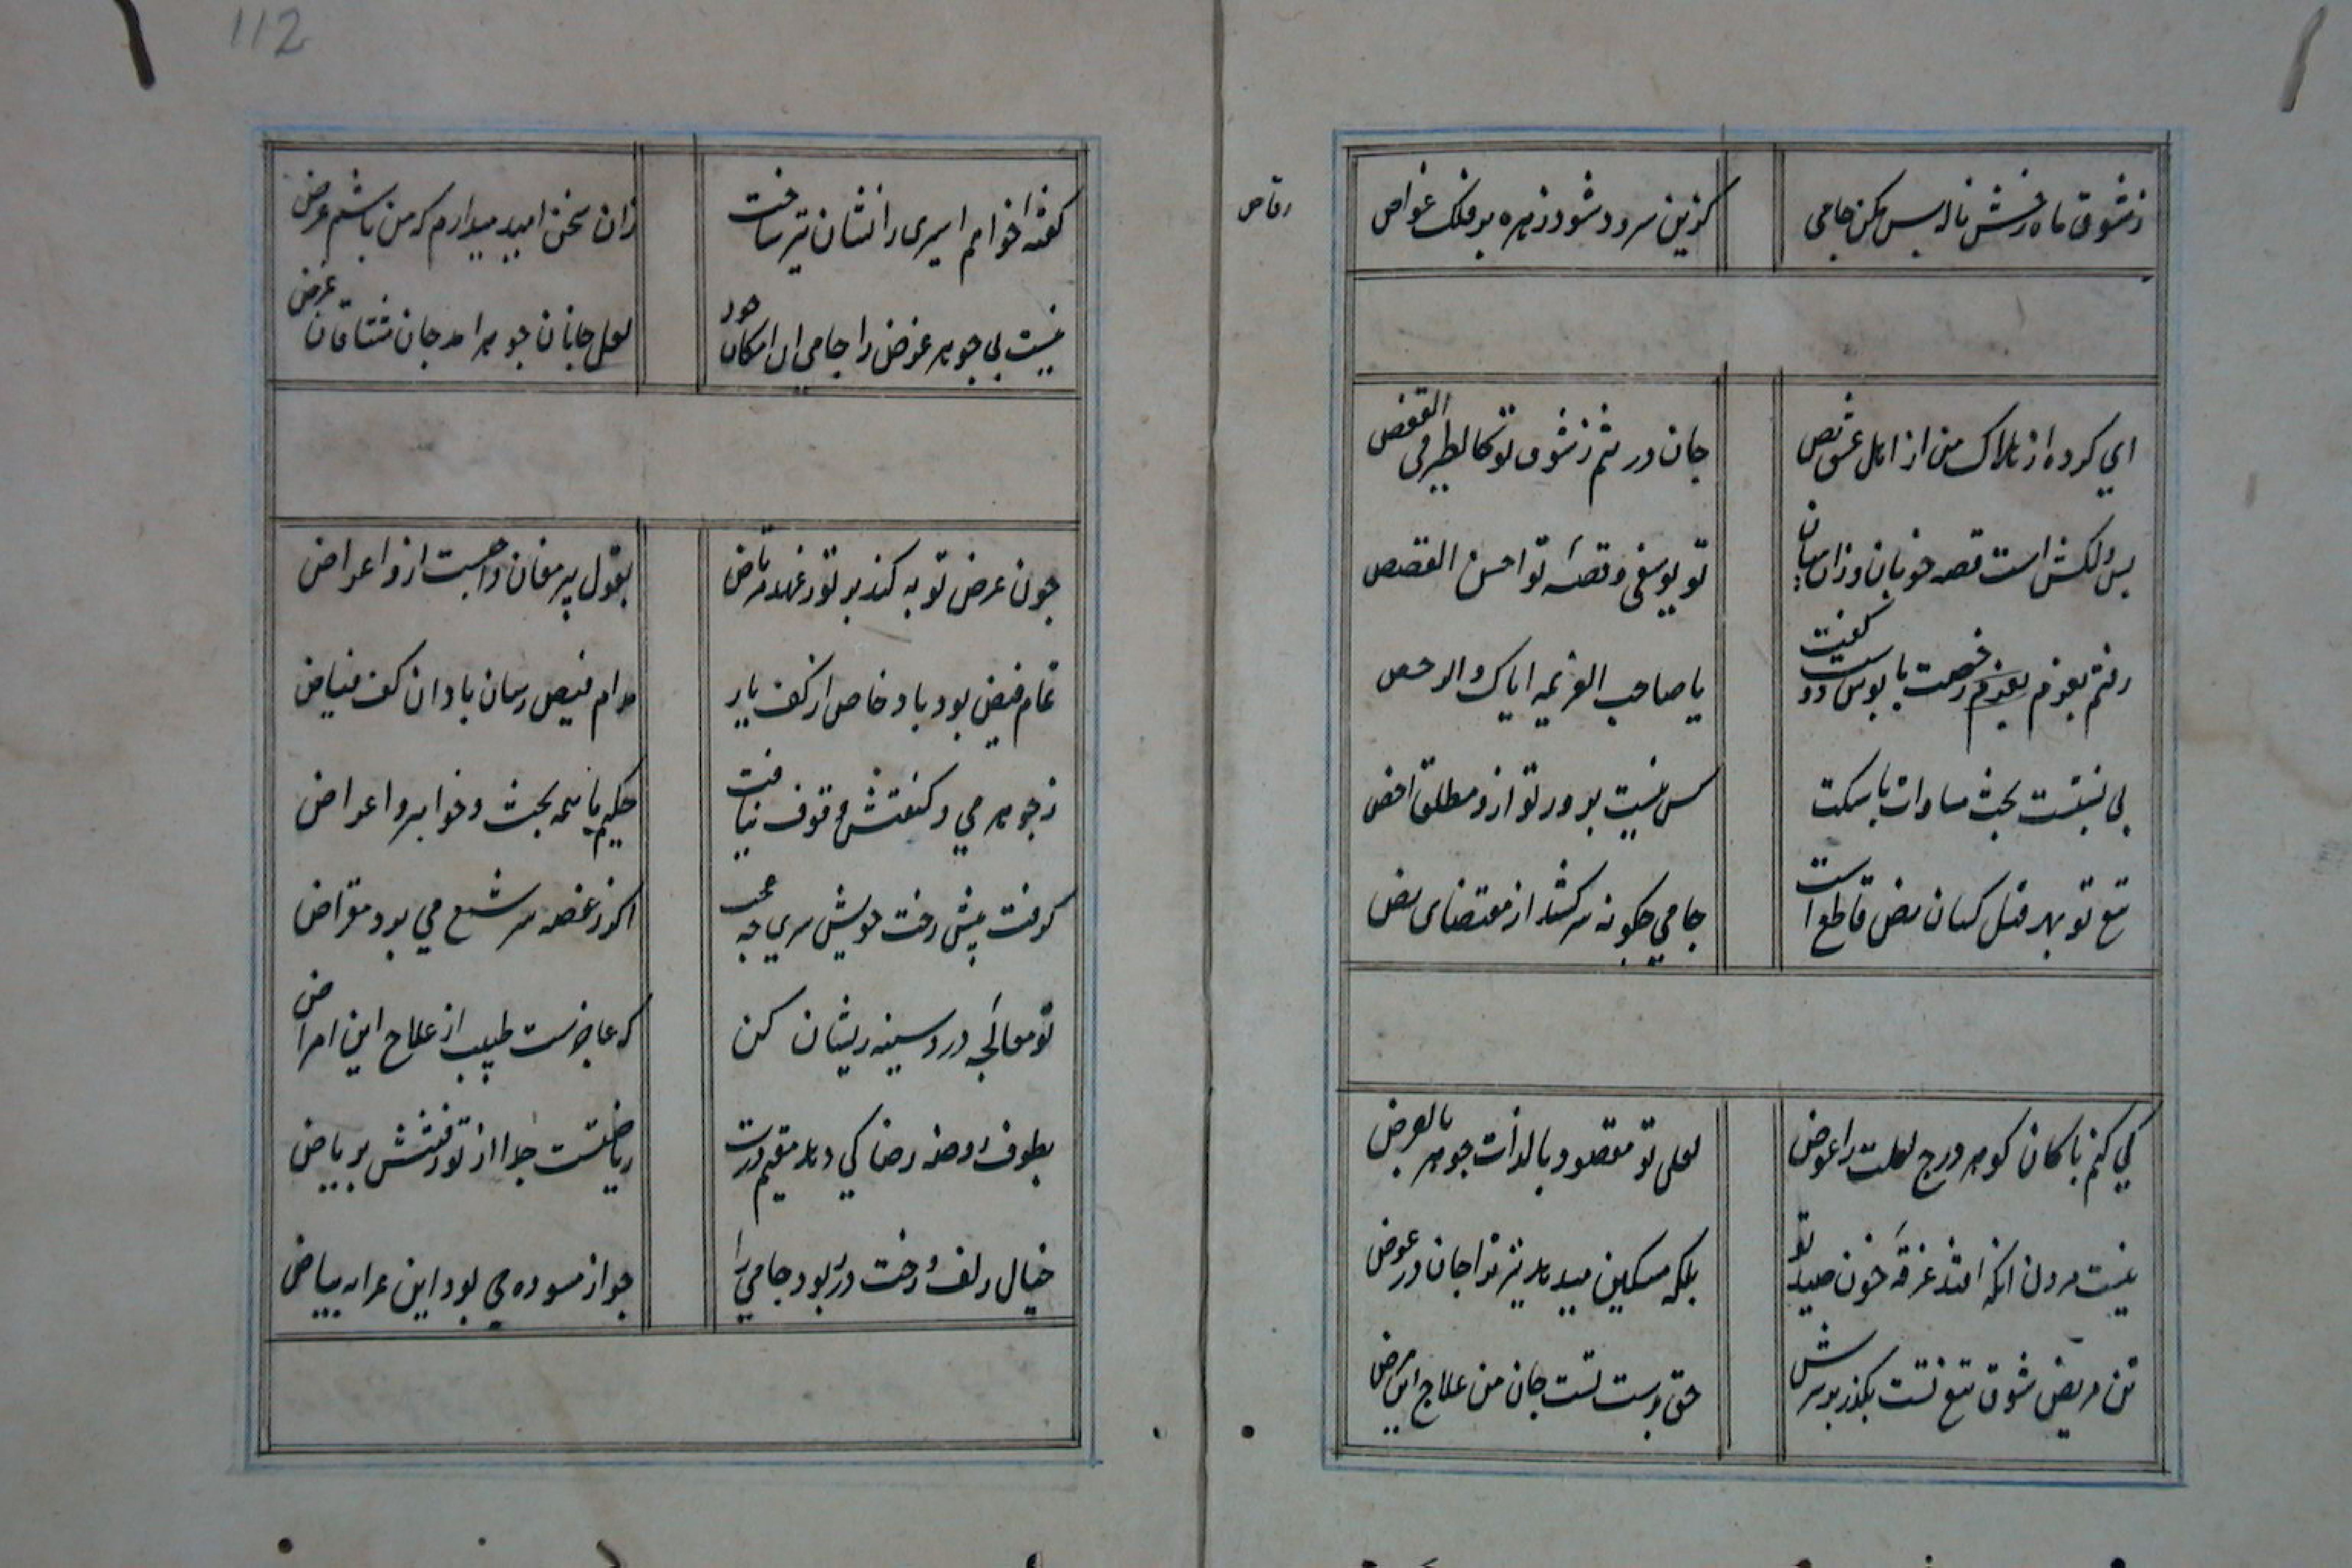 ز شوق ماه رخش ناله بس مکن جامی
کزین سرود شود زهره بر فلک غواص
رقاص
ای کرده از هلاک من از اهل عشق نص
جان در تنم ز شوق تو کالطیر فی القفص
بس دلکش است قصه خوبان وزان میان
تو یوسفی و قصهٔ تو احسن القصص
رفتم بعزم رخصت پابوس دوست گفت
یا صاحب العزیمه ایاک والرخص
بی نسبتست بحث مساوات با سکت
کس نیست بر در تو ازو مطلق اخص
تیغ تو بهر قتل کسان نص قاطع است
جامی چکونه سر کشد از مقتضای نص
کی کنم با کان کوهر درج لعلت را عوض
لعل تو مقصود بالذات جوهر بالعرض
نیست مردن انکه افتد غرقهٔ خون صید تو
بلکه مسکین میدهد تیر ترا جان در عوض
تن مریض شوق تیغ تست بکذر بر سرش
حق بدست تست جان من علاج این مرض
112
کفتهٔ خواهم اسیری را نشان تیر ساخت
زان سخن امید میدارم که من باشم غرض
نیست بی جوهر عرض را جامی ان امکان خود
لعل جانان جوهر امد جان مشتاقان عرض
چون عرض توبه کند بر تو زهد مرتاض
بقول پیر مغان واجبست ازو اعراض
تمام فیض بود باده خاص از کف یار
مدام فیض رسان باد ان کف فیاض
ز جوهر می و کیفیتش وقوف نیافت
حکیم با همه بحث جواهر و اعراض
کرفت پیش رخت خویش سری چه عجب
اکر ز غصه سر شمع می برد مقراض
تو معالجهٔ درد سینه ریشان کن
که عاجزست طبیب از علاج این امراض
بطوف روضه رضا کی دهد مقیم درت
ریاضتست جدا از تو رفتنش بریاض
خیال زلف و رخت در ربود جامی را
جو از مسوده می بود این غزل به بیاض